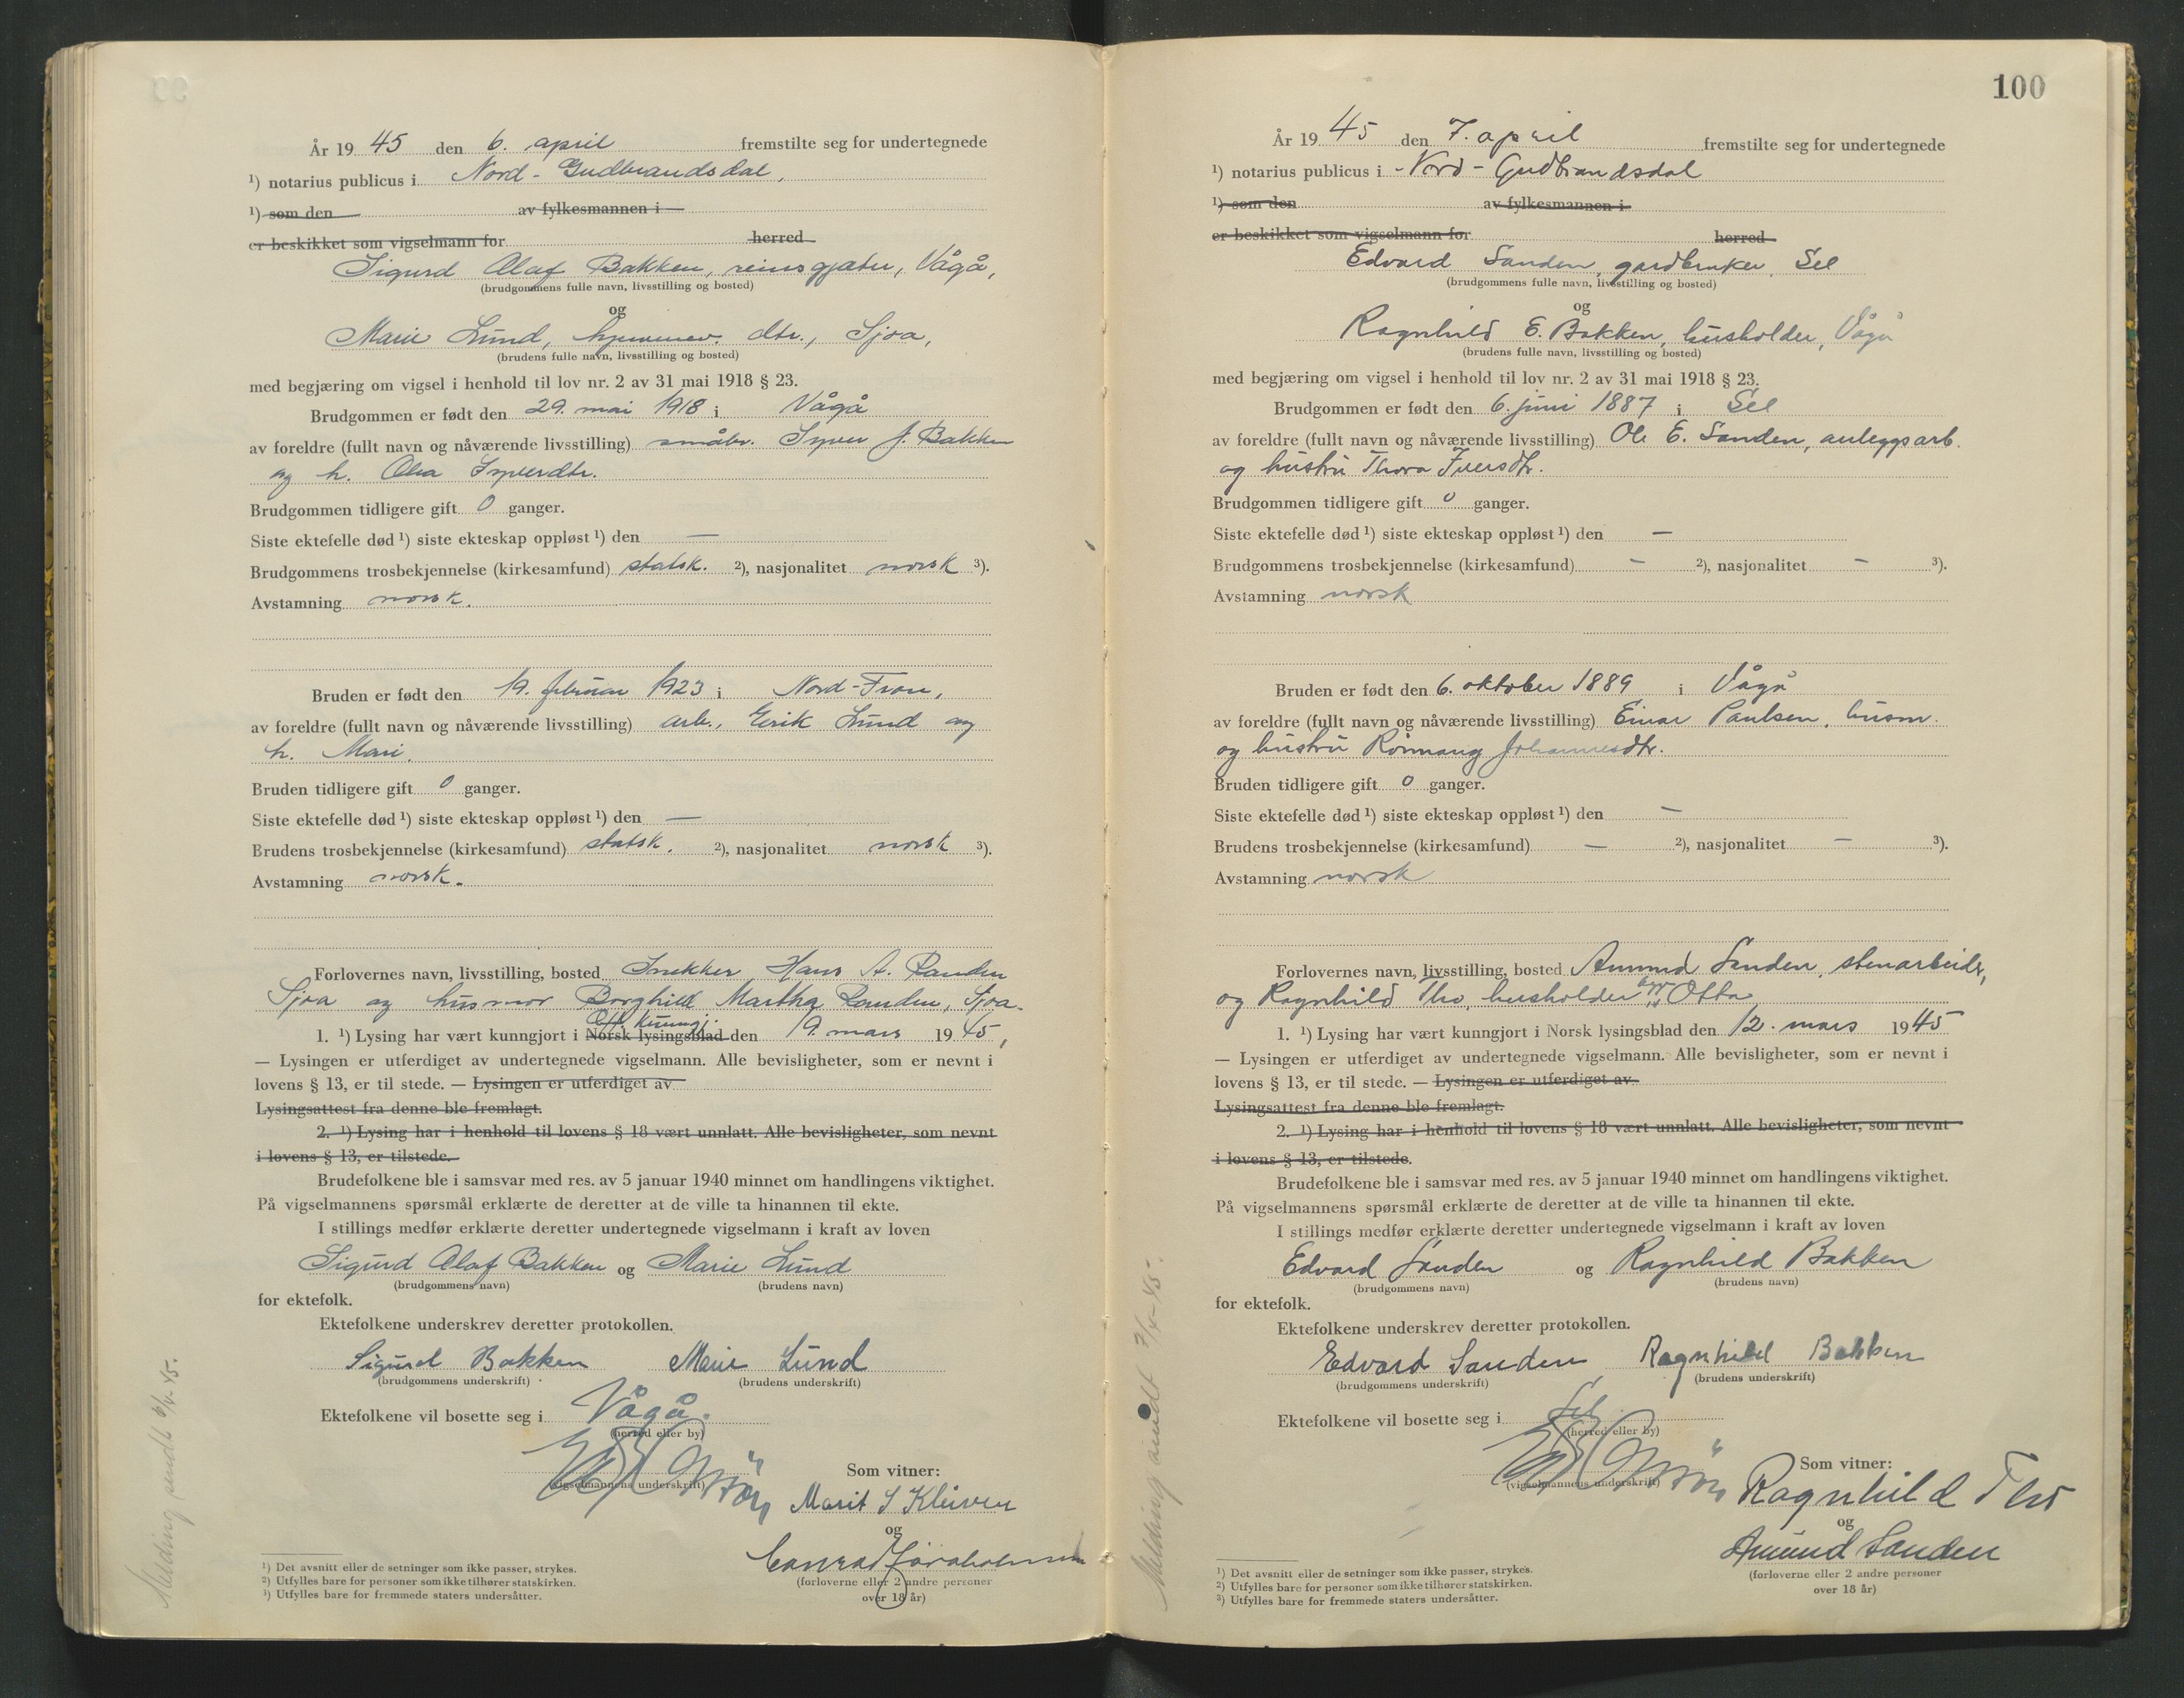 År 19 45 den 6. april fremstilte seg for undertegnede
¹) notarius publicus i Nord-Gudbrandsdal,
¹) som den av fylkesmannen i
er beskikket som vigselmann for herred
Sigurd Olaf Bakken, reinsgjæter, Vågå,
(brudgommens fulle navn, livsstilling og bosted)
og
Marie Lund, hjemmev. dtr., Sjoa,
(brudens fulle navn, livsstilling og bosted)
med begjæring om vigsel i henhold til lov nr. 2 av 31 mai 1918 § 23.
Brudgommen er født den 29. mai 1918 i Vågå
av foreldre (fullt navn og nåværende livsstilling) småbr. Syver J. Bakken
og h. Syverdtr.
Brudgommen tidligere gift 0 ganger.
Siste ektefelle død ¹) siste ekteskap oppløst ¹) den —
Brudgommens trosbekjennelse (kirkesamfund) statsk. ²), nasjonalitet norsk ³).
Avstamning norsk.
Bruden er født den 19. februar 1923 i Nord-Fron,
av foreldre (fullt navn og nåværende livsstilling) arb., Erik Lund og
h. Mari.
Bruden tidligere gift 0 ganger.
Siste ektefelle død ¹) siste ekteskap oppløst ¹) den —
Brudens trosbekjennelse (kirkesamfund) statsk. ²), nasjonalitet norsk ³).
Avstamning norsk.
Forlovernes navn, livsstilling, bosted Snekker Hans A. Randen
Sjoa og husmor Borghild Martha Randen, Sjoa.
Off. kunngj.
1. ¹) Lysing har vært kunngjort i Norsk lysingsblad den 19. mars 1945,
— Lysingen er utferdiget av undertegnede vigselmann. Alle bevisligheter, som er nevnt i
lovens § 13, er til stede. — Lysingen er utferdiget av
Lysingsattest fra denne ble fremlagt.
2. ¹) Lysing har i henhold til lovens § 18 vært unnlatt. Alle bevisligheter, som nevnt
i lovens § 13, er tilstede.
Brudefolkene ble i samsvar med res. av 5 januar 1940 minnet om handlingens viktighet.
På vigselmannens spørsmål erklærte de deretter at de ville ta hinannen til ekte.
I stillings medfør erklærte deretter undertegnede vigselmann i kraft av loven
Sigurd Olaf Bakken og Marie Lund
(brudgommens navn) (brudens navn)
for ektefolk.
Ektefolkene underskrev deretter protokollen.
Sigurd Bakken Marie Lund
(brudgommens underskrift) (brudens underskrift)
Ektefolkene vil bosette seg i Vågå.
(herred eller by)
(vigselmannens underskrift)
Som vitner:
Marit S Kleiven
og
Conrad
(forloverne eller 2 andre personer
over 18 år)
¹) Det avsnitt eller de setninger som ikke passer, strykes.
²) Utfylles bare for personer som ikke tilhører statskirken.
³) Utfylles bare for fremmede staters undersåtter.
Melding sendt 6/4-45.
100
År 19 45 den 7. april fremstilte seg for undertegnede
¹) notarius publicus i Nord-Gudbrandsdal
¹) som den av fylkesmannen i
er beskikket som vigselmann for herred
Edvard Sanden, gardbruker, Sel
(brudgommens fulle navn, livsstilling og bosted)
og
Ragnhild E. Bakken, husholder, Vågå
(brudens fulle navn, livsstilling og bosted)
med begjæring om vigsel i henhold til lov nr. 2 av 31 mai 1918 § 23.
Brudgommen er født den 6. juni 1887 i Sel
av foreldre (fullt navn og nåværende livsstilling) Ole E. Sanden, anleggsarb.
og hustru Thora Iversdtr.
Brudgommen tidligere gift 0 ganger.
Siste ektefelle død ¹) siste ekteskap oppløst ¹) den —
Brudgommens trosbekjennelse (kirkesamfund) - ²), nasjonalitet - ³).
Avstamning norsk
Bruden er født den 6. oktober 1889 i Vågå
av foreldre (fullt navn og nåværende livsstilling) Einar Paulsen, husm.
og hustru Rønnaug Johannesdtr.
Bruden tidligere gift 0 ganger.
Siste ektefelle død ¹) siste ekteskap oppløst ¹) den -
Brudens trosbekjennelse (kirkesamfund) — ²), nasjonalitet — ³).
Avstamning norsk
Forlovernes navn, livsstilling, bosted Amund Sanden, stenarbeider,
og Ragnhild Tho, husholder, Otta
1. ¹) Lysing har vært kunngjort i Norsk lysingsblad den 12. mars 1945
— Lysingen er utferdiget av undertegnede vigselmann. Alle bevisligheter, som er nevnt i
lovens § 13, er til stede. — Lysingen er utferdiget av
Lysingsattest fra denne ble fremlagt.
2. ¹) Lysing har i henhold til lovens § 18 vært unnlatt. Alle bevisligheter, som nevnt
i lovens § 13, er tilstede.
Brudefolkene ble i samsvar med res. av 5 januar 1940 minnet om handlingens viktighet.
På vigselmannens spørsmål erklærte de deretter at de ville ta hinannen til ekte.
I stillings medfør erklærte deretter undertegnede vigselmann i kraft av loven
Edvard Sanden og Ragnhild Bakken
(brudgommens navn) (brudens navn)
for ektefolk.
Ektefolkene underskrev deretter protokollen.
Edvard Sanden Ragnhild Bakken
(brudgommens underskrift) (brudens underskrift)
Ektefolkene vil bosette seg i Sel
(herred eller by)
(vigselmannens underskrift)
Som vitner:
Ragnhild Tho
og
Amund Sanden
(forloverne eller 2 andre personer
over 18 år)
¹) Det avsnitt eller de setninger som ikke passer, strykes.
²) Utfylles bare for personer som ikke tilhører statskirken.
³) Utfylles bare for fremmede staters undersåtter.
Melding sendt 7/4-45.